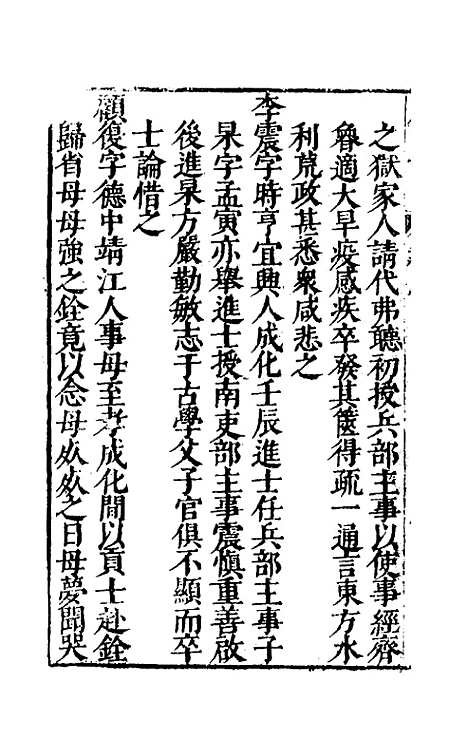 之獄家人請代弗聽初授兵部主事以使事經齊
魯適大旱疫感疾卒發其篋得疏一通言東方水
利荒政甚悉衆咸悲之
李震字時亨宜興人成化壬辰進士任兵部主事子
杲字孟寅亦舉進士授南吏部主事震愼重善啟
後進杲方嚴勤敏志于古學父子官俱不顯而卒
士論惜之
顧復字德中靖江人事母至孝成化間以貢士赴銓
歸省母母強之銓竟以念母死死之日母夢聞哭